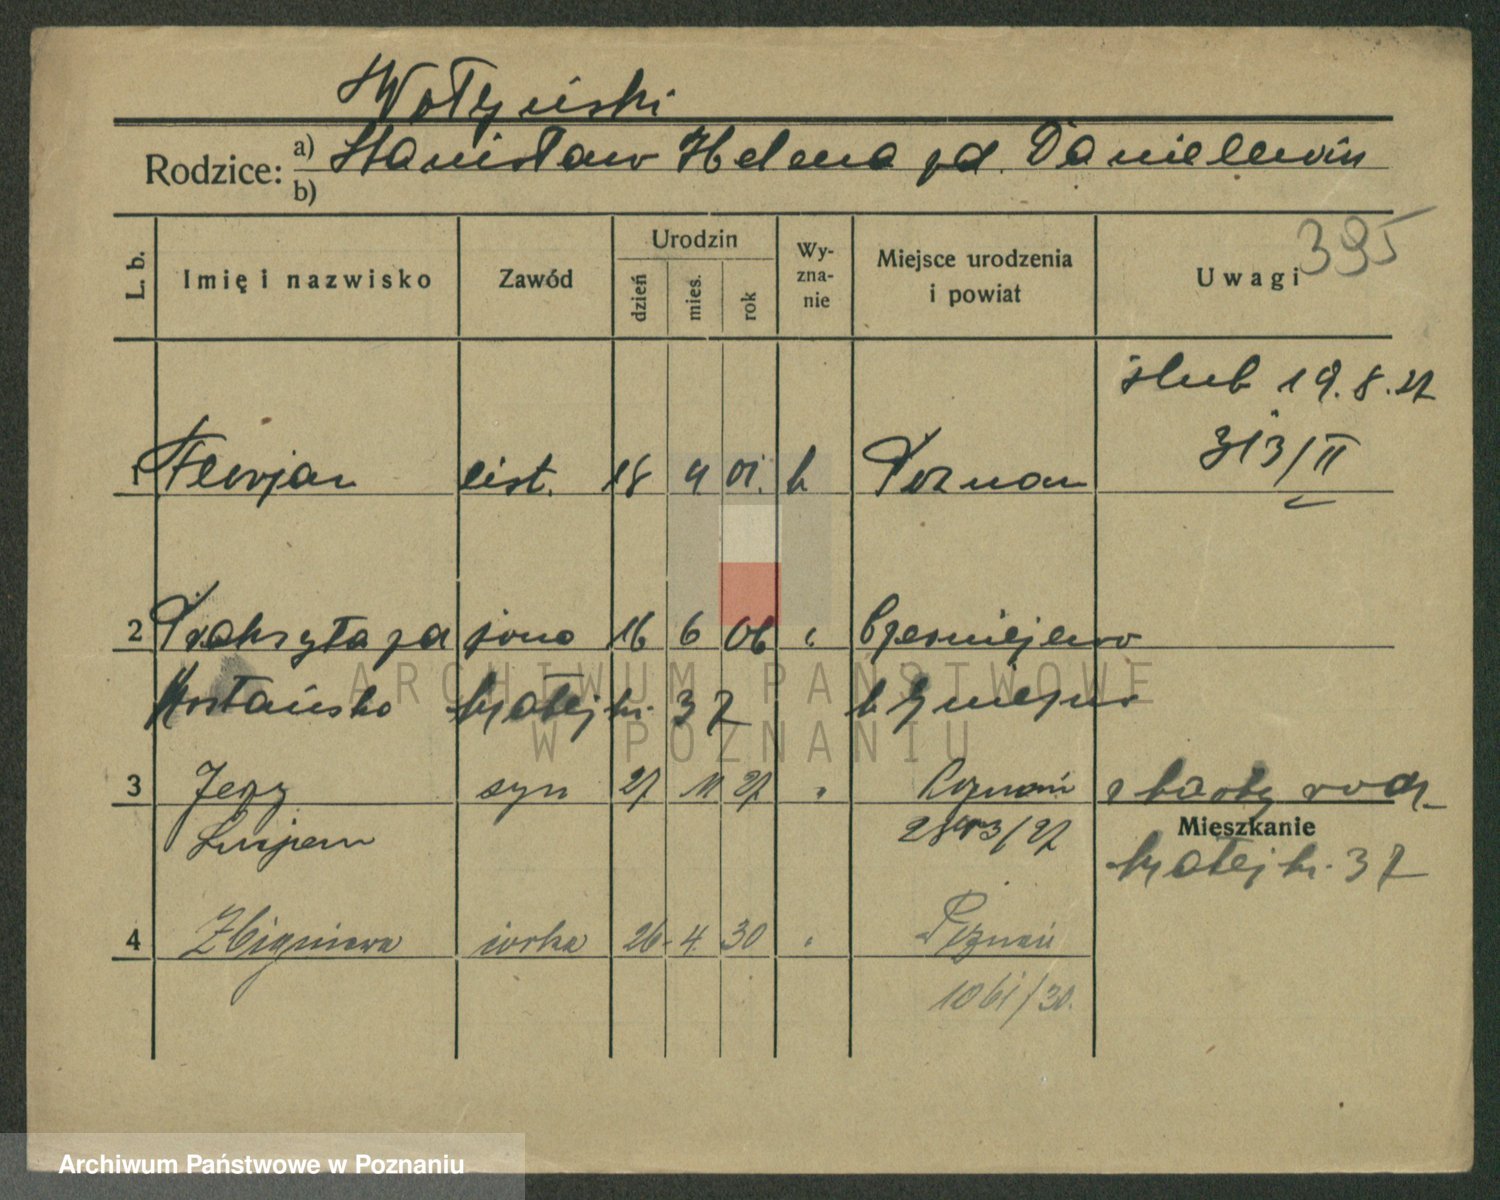 Wołyński
Rodzice: a) Stanisław Helena zd. Danielewicz
b)
395
L. b. Imię i nazwisko Zawód Urodzin dzień mies. rok Wy-zna-nie Miejsce urodzenia i powiat Uwagi
ślub 19.8.27
313/II
1 Florjan list. 18 4 01. k Poznań
2 Prakseda zd żona 16 6 06 Czerniejewo
Matejki 37
3 Jerzy syn 27 11 27 Poznań z karty rodz.
Lucjan 2843/27
Mieszkanie
Matejki 37
4 Zbigniewa córka 26. 4. 30 Poznań
1061/30.
ARCHIWUM PAŃSTWOWE
W POZNANIU
Archiwum Państwowe w Poznaniu